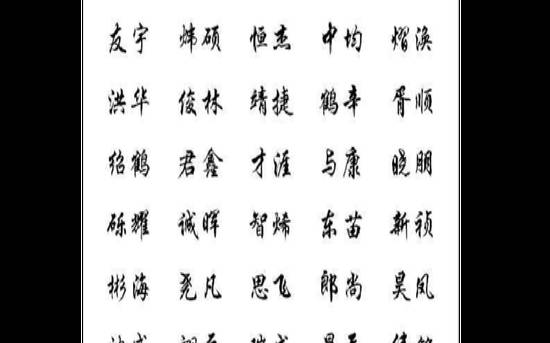 友宇 炜硕 恒杰 中均 熠涣
洪华 俊林 靖捷 鹤辛 胥顺
绍鹤 君鑫 才涯 与康 晓朋
砾耀 诚晖 智烯 东苗 新祯
彬海 尧凡 思飞 郎尚 昊凤